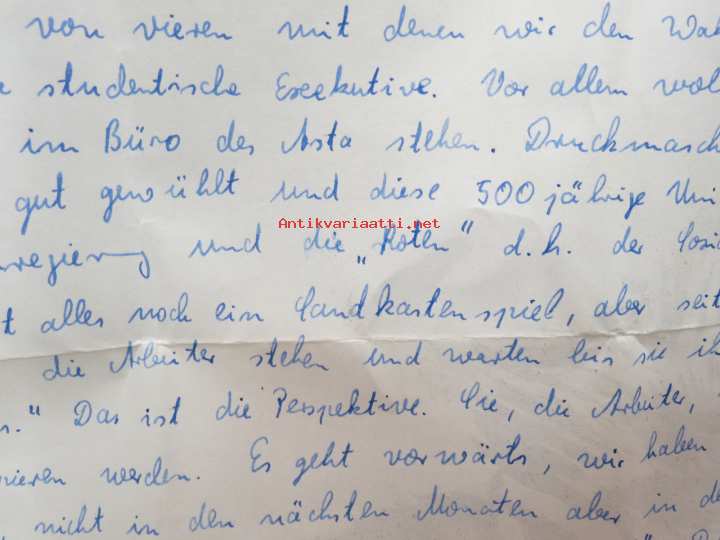 von vieren mit denen wir den Wa
studentische Exekutive. Vor allem wol
im Büro des Asta stehen. Druckmasch
gut gewühlt und diese 500 jährige Uni
Antikvariaatti.net
regierung und die „Roten" d.h. der Sozi
t alles noch ein Sandkastenspiel, aber seit
die Arbeiter stehen und warten bis sie ih
s." Das ist die Perspektive. Sie, die Arbeiter,
nieren werden. Es geht vorwärts, wir haben
nicht in den nächsten Monaten aber in de